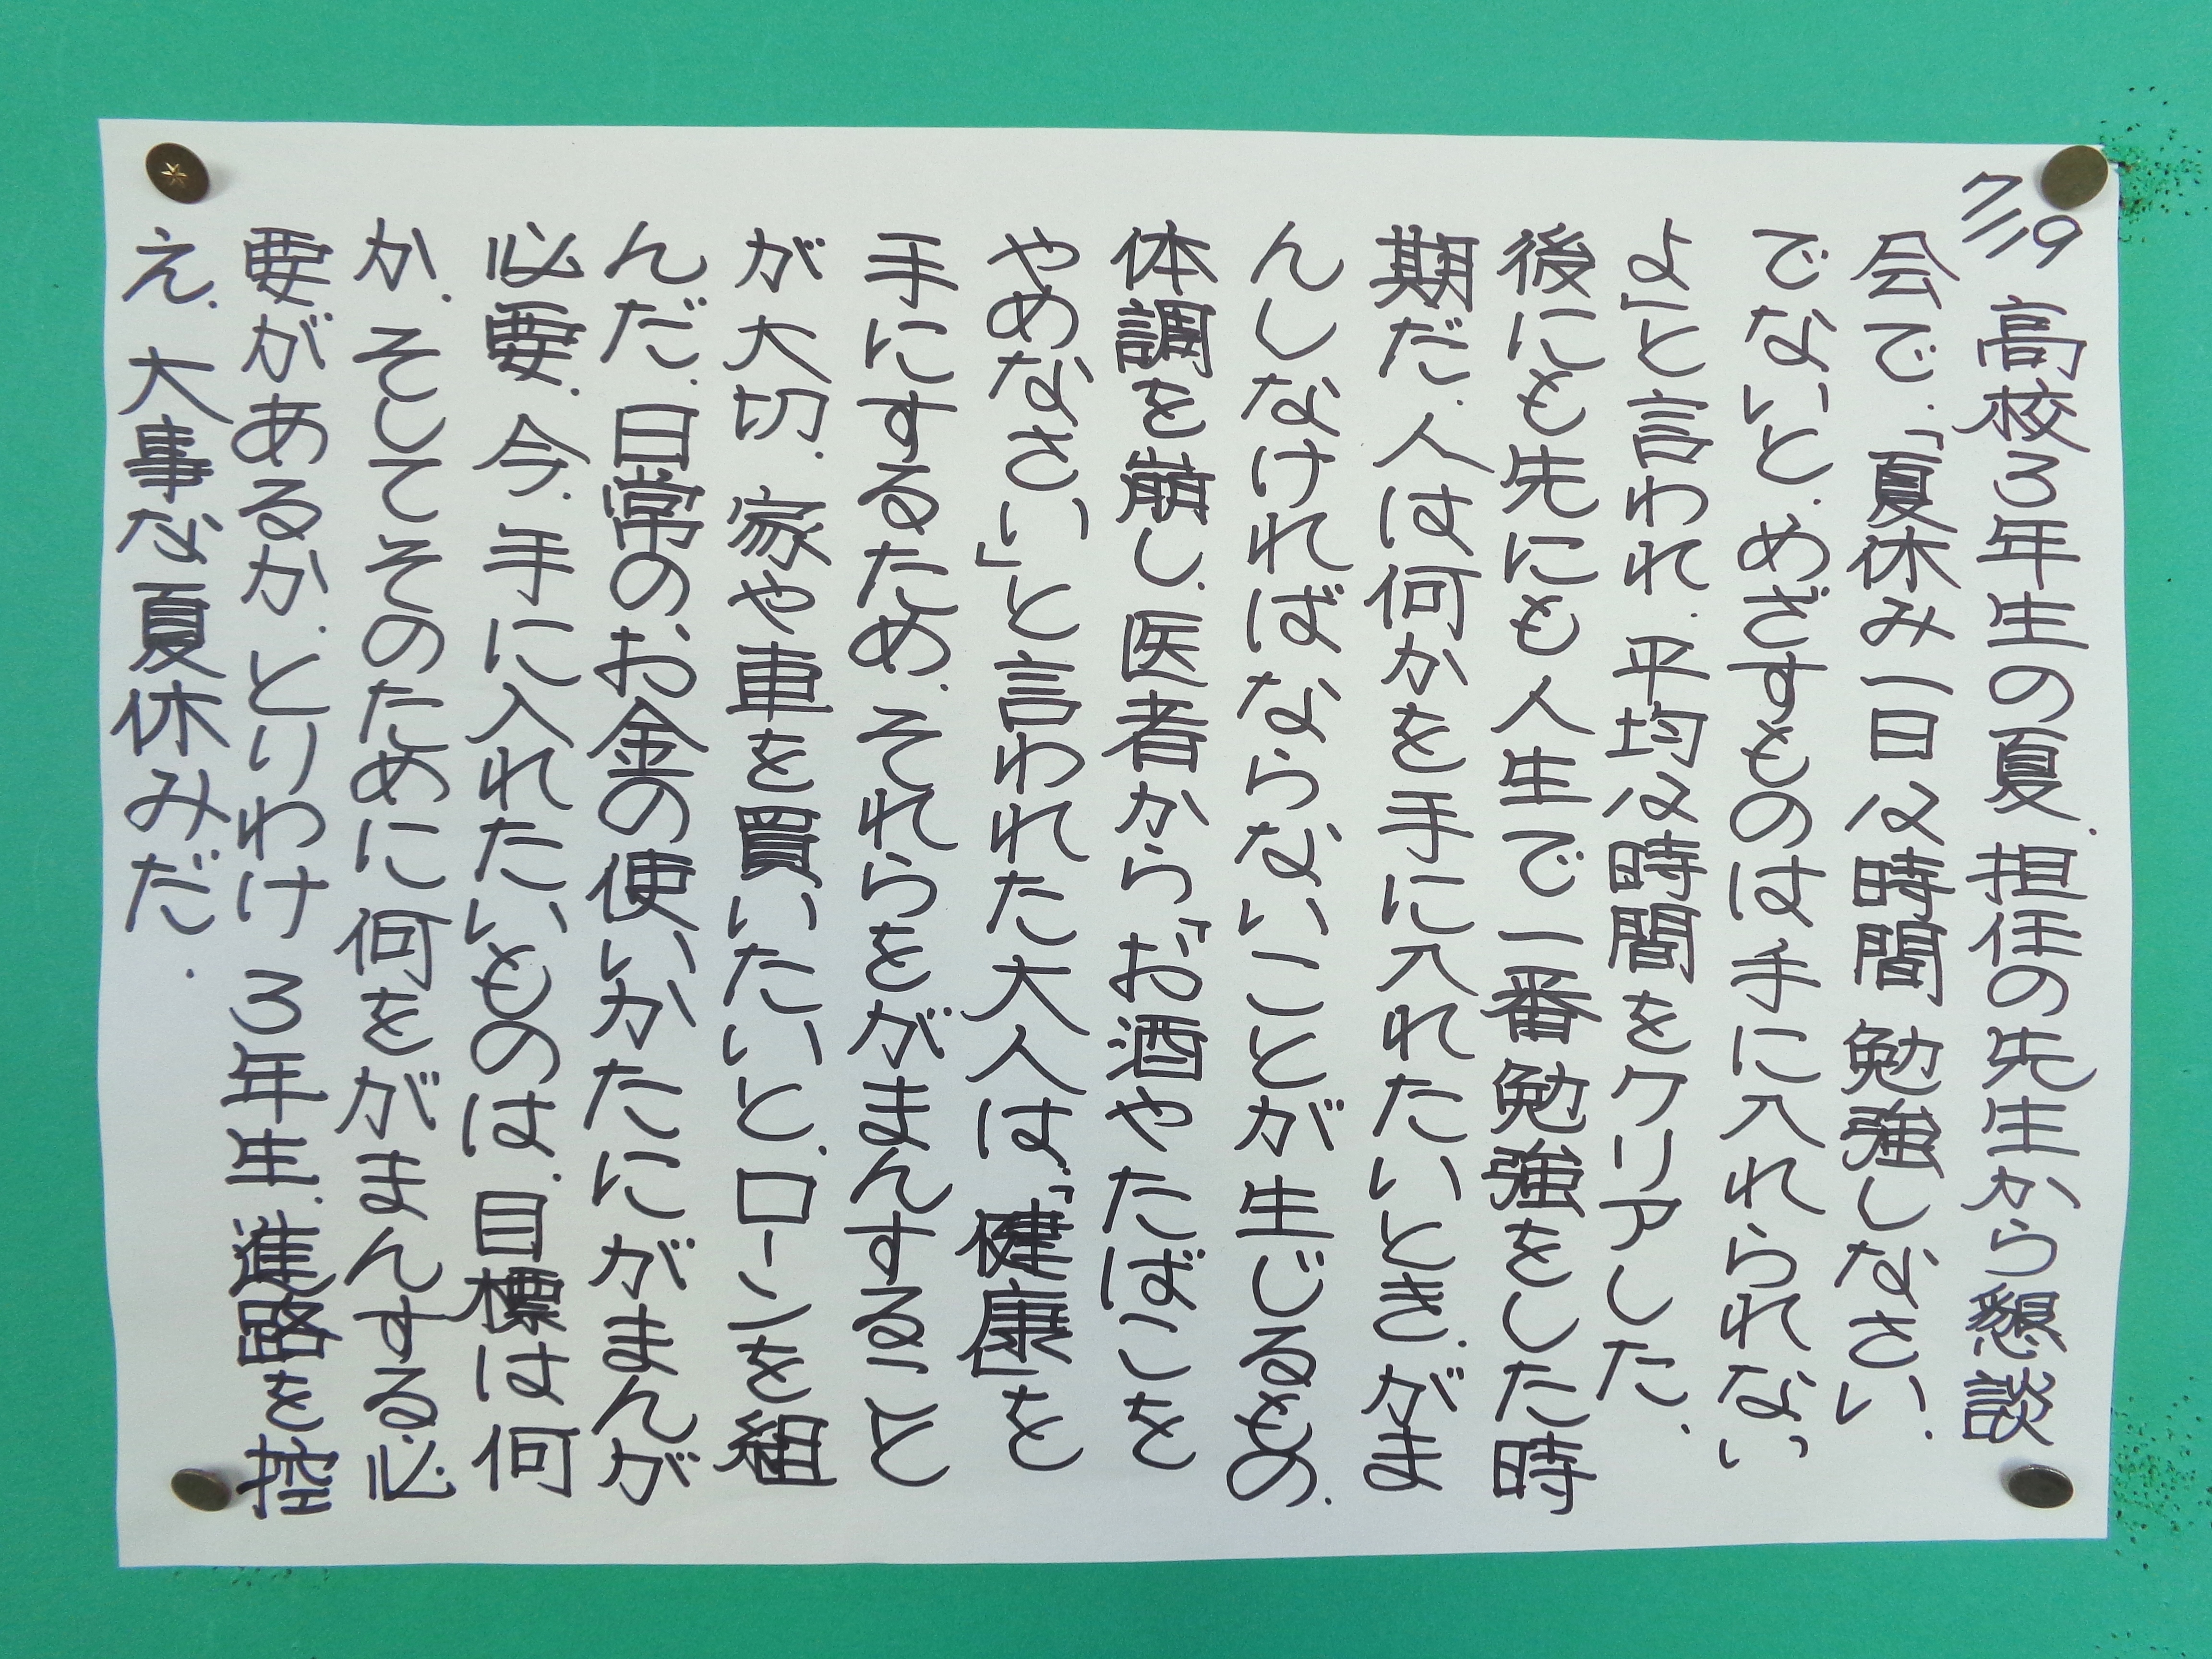 7/19 高校3年生の夏、担任の先生から懇談
会で、「夏休み一日12時間勉強しなさい、
でないと、めざすものは手に入れられない
よ」と言われ、平均12時間をクリアした、
後にも先にも人生で一番勉強をした時
期だ、人は何かを手に入れたいとき、がま
んしなければならないことが生じるもの、
体調を崩し、医者から「お酒やたばこを
やめなさい」と言われた大人は、「健康」を
手にするため、それらをがまんすること
が大切、家や車を買いたいと、ローンを組
んだ、日常のお金の使いかたにがまんが
必要、今、手に入れたいものは、目標は何
か、そしてそのために何をがまんする必
要があるか、とりわけ3年生、進路を控
え、大事な夏休みだ、